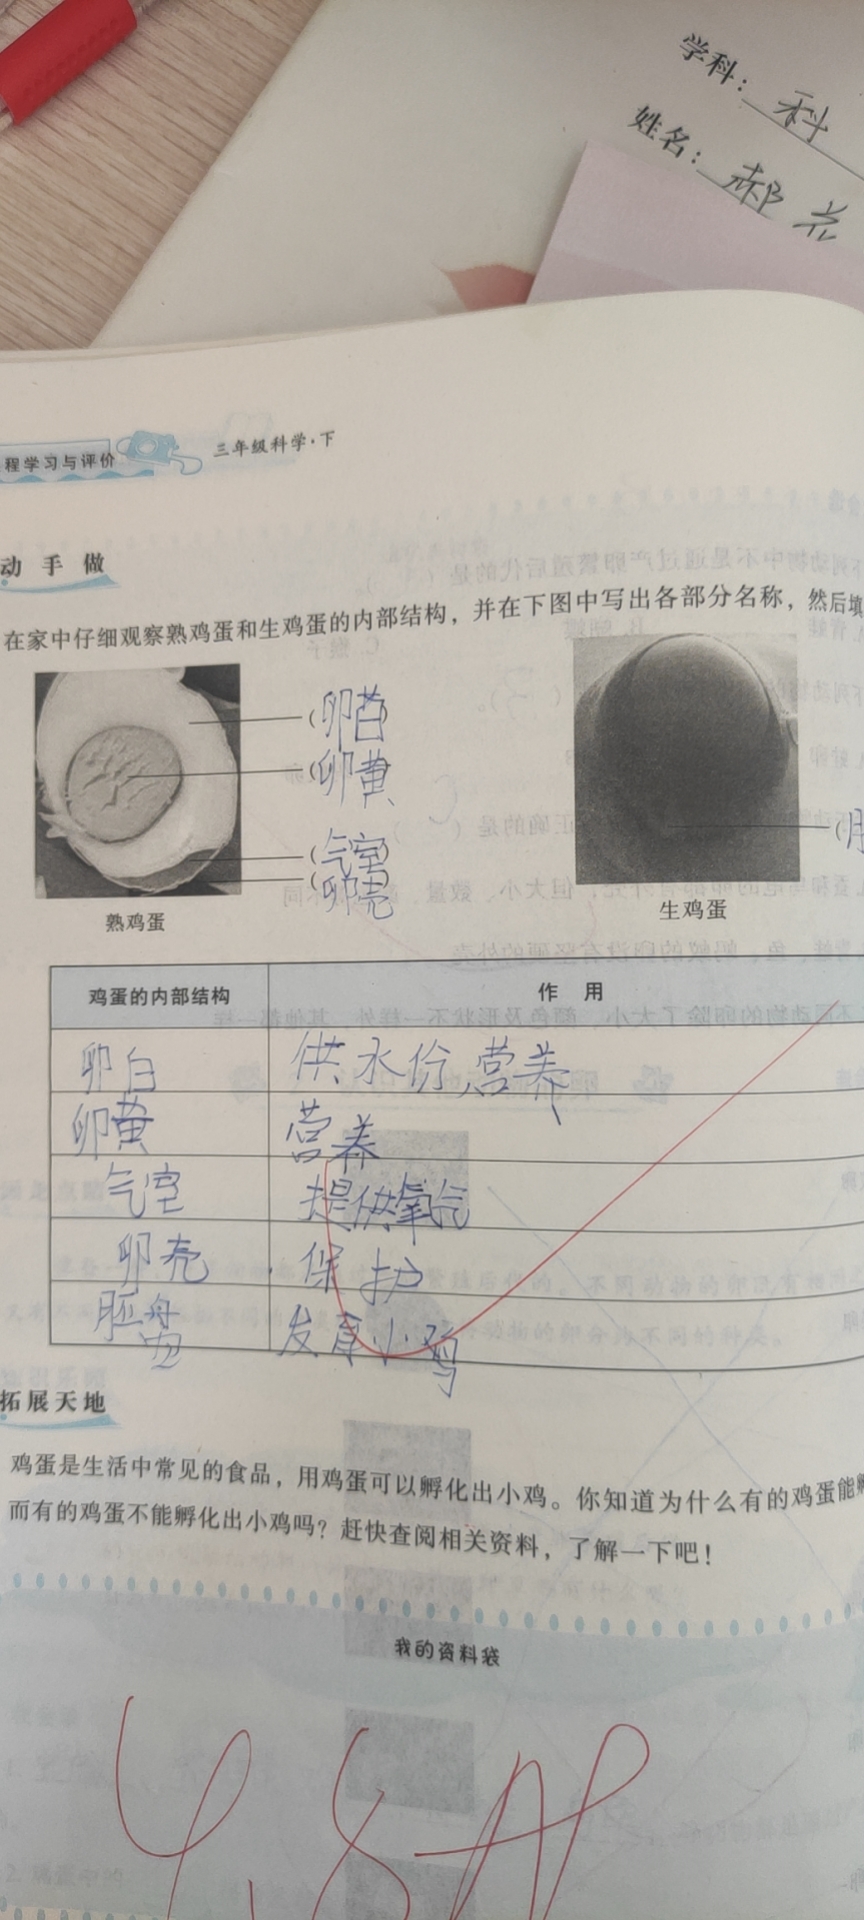 学科：科
姓名：郝
程学习与评价
三年级科学·下
动手做
在家中仔细观察熟鸡蛋和生鸡蛋的内部结构，并在下图中写出各部分名称，然后填
（卵白）
（卵黄
（气室）
（卵壳
熟鸡蛋
生鸡蛋
鸡蛋的内部结构 作用
卵白 供水份，营养
卵黄 营养
气室 提供氧气
卵壳 保护
胚盘 发育小鸡
拓展天地
鸡蛋是生活中常见的食品，用鸡蛋可以孵化出小鸡。你知道为什么有的鸡蛋能孵
而有的鸡蛋不能孵化出小鸡吗？赶快查阅相关资料，了解一下吧！
我的资料袋